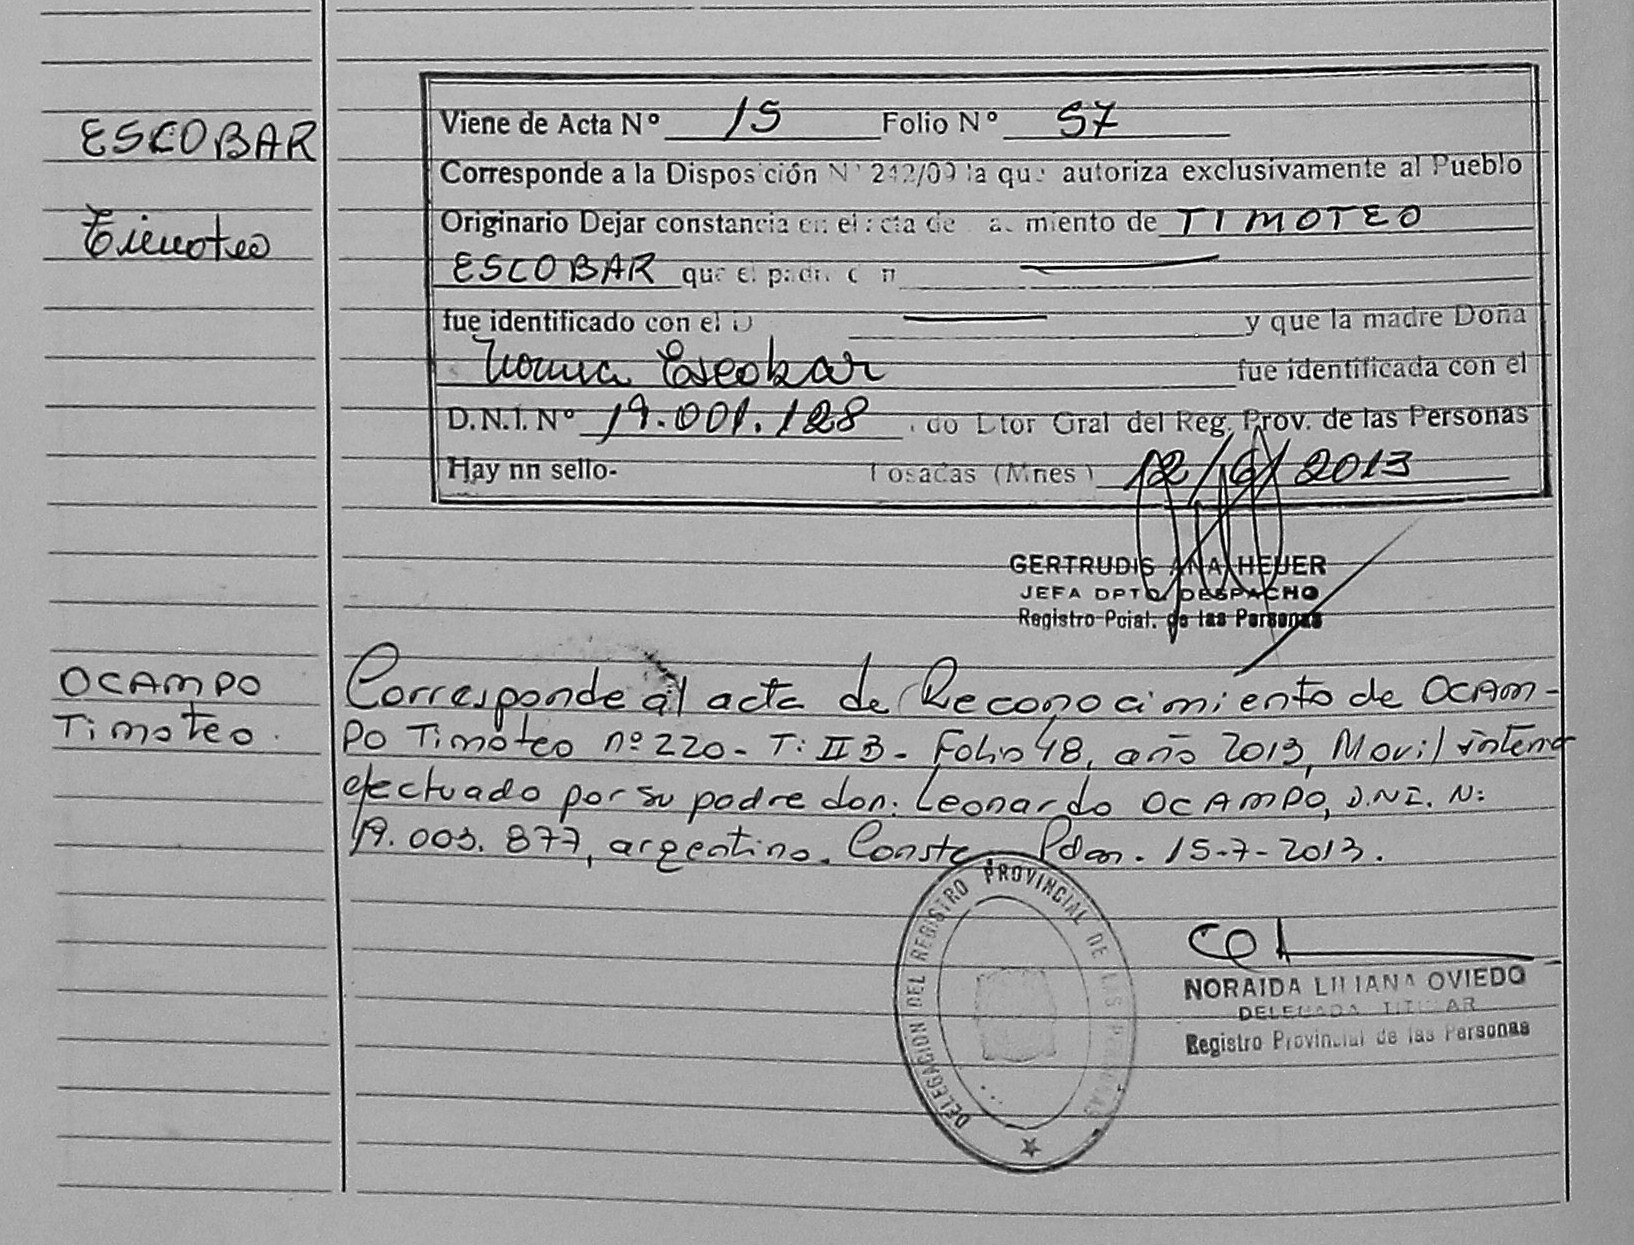 ESCOBAR
Timoteo
Viene de Acta Nº 15 Folio Nº 57
Corresponde a la Disposición Nº 242/09 la que autoriza exclusivamente al Pueblo
Originario Dejar constancia en el acta de miento de TIMOTEO
ESCOBAR que el padre
fue identificado con el D y que la madre Doña
Norma Escobar fue identificada con el
D.N.I. Nº 19.001.128 do Dtor Gral del Reg. Prov. de las Personas
Hay nn sello- Posadas (Mnes) 12/6/2013
GERTRUDIS ANA HEUER
JEFA DPTO DESPACHO
Registro Pcial. de las Personas
OCAMPO
Timoteo.
Corresponde al acta de Reconocimiento de OCAM-
PO Timoteo nº 220- T: II B- Folio 48, año 2013, Movil interno
efectuado por su padre don: Leonardo OCAMPO, D.N.I. N:
19.003.877, argentino. Conste. Pdas. 15-7-2013.
DELEGACION DEL REGISTRO PROVINCIAL DE LAS PERSONAS
NORAIDA LILIANA OVIEDO
DELEGADA TITULAR
Registro Provincial de las Personas